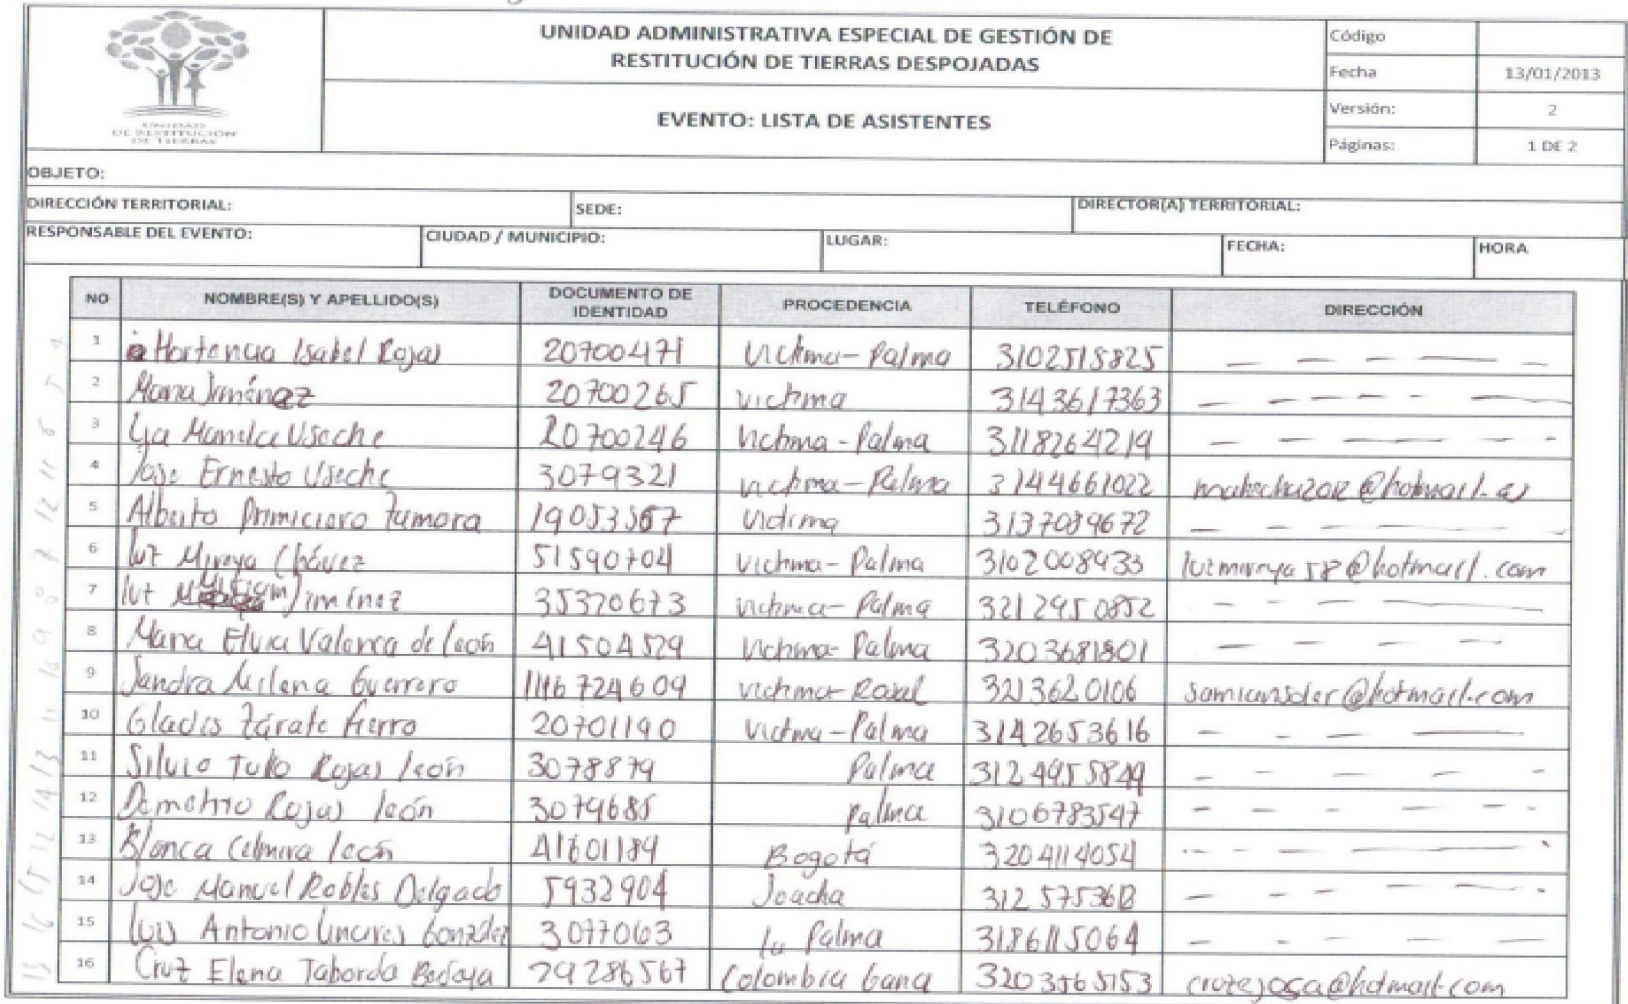 UNIDAD DE RESTITUCIÓN DE TIERRAS
UNIDAD ADMINISTRATIVA ESPECIAL DE GESTIÓN DE
RESTITUCIÓN DE TIERRAS DESPOJADAS
EVENTO: LISTA DE ASISTENTES
Código
Fecha 13/01/2013
Versión: 2
Páginas: 1 DE 2
OBJETO:
DIRECCIÓN TERRITORIAL: SEDE: DIRECTOR(A) TERRITORIAL:
RESPONSABLE DEL EVENTO: CIUDAD / MUNICIPIO: LUGAR: FECHA: HORA
NO NOMBRE(S) Y APELLIDO(S) DOCUMENTO DE IDENTIDAD PROCEDENCIA TELÉFONO DIRECCIÓN
1 Hortencia Isabel Rojas 20700471 Victima - Palma 3102515825
2 Maria Jiménez 20700265 victima 3143617363
3 Useche 20700246 Victima - Palma 3118264219
4 Jose Ernesto Useche 3079321 victima - Palma 3144661022
5 Alberto Primiciero Zamora Victima 3137089672
6 luz Mireya Chávez 51590704 Victima - Palma 3102008933 luzmireya58@hotmail.com
7 luz Jiménez 35320673 victima - Palma 3212950852
8 Maria Elvia de león 41504529 Victima - Palma 3203681801
9 Sandra Milena Guerrero 1146724609 victima - 3213620106
10 Gladis Zárate fierro 20701190 Victima - Palma 3142653616
11 Silvio Tulio Rojas león 3078879 Palma 3124955849
12 Demetrio Rojas león 3079685 Palma 3106783547
13 Blanca león Bogotá 3204114054
14 Jose Manuel Robles Delgado 5932904
15 luis Antonio linares González 3077063 la Palma 3186115064
16 Cruz Elena Taborda Bedoya Colombia